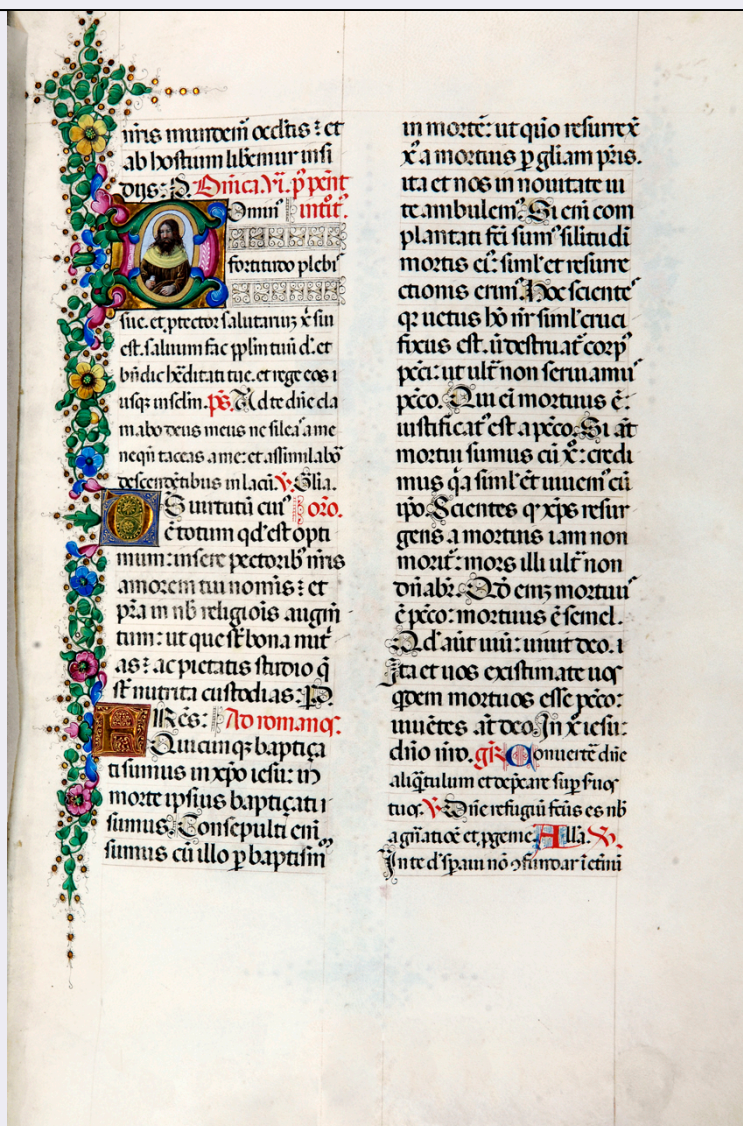 nr̄is mundem̄ occl̄tis: et
ab hostium lib̄emur insi
dijs: P. Dn̄ica. vi. p̄ pent̄
Dominꝰ introit̄.
fortitudo plebiˢ
sue. et ꝓtector salutariuꝫ xp̄i sui
est. saluum fac ppl̄m tuū d. et
bn̄dic hēditati tue. et rege eos i
usqꝫ in sclm̄. ps̄. Ad te dn̄e cla
mabo deus meus ne sileaˢ a me
neqn̄ taceas a me: et assimilabōr
descendētibus in lacū. V. Gl̄ia.
DEus uirtutū cuiꝰ or̄o.
ē totum qd̓ est opti
mum: insere pectoribꝰ nr̄is
amorem tui nomis: et
pr̄a in nb̄ religiōis augm̄
tum: ut que sūt bona nut̓
as: ac pietatis studio q̄
sūt nutrita custodias: P.
FRēs: Ad romanos.
Quicumqꝫ baptiça
ti sumus in xp̄o iesu: in
morte ipsius baptiçati
sumus. Consepulti eni
sumus cū illo p̄ baptism̄
in mortē: ut quō resurrex̄
xp̄s a mortuis p̄ gl̄iam pr̄is.
ita et nos in nouitate ui
te ambulemꝰ. Si eni com
plantati fc̄i sumꝰ sīlitudi
mortis eiꝰ: siml̓ et resurre
ctionis erimꝰ. Hoc scienteˢ
qꝛ uetus hō nr̄ siml̓ cruci
fixus est. ū destruat̓ corpꝰ
pc̄ci: ut ult̓ non seruiamꝰ
pc̄co. Qui ei mortuus ē:
iustificatꝰ est a pc̄co. Si at̄
mortui sumus cū xp̄o: credi
mus qꝛ siml̓ ēt uiuemꝰ cū
ip̄o. Scientes qꝛ xp̄s resur
gens a mortuis iam non
morit̓: mors illi ult̓ non
dn̄abr̄. Qd̓ enim mortuuˢ
ē pc̄co: mortuus ē semel.
Qd̓ aūt uiuit: uiuit deo.
Ita et uos existimate uos
qdem mortuos esse pc̄co:
uiuētes at̄ deo. In xp̄o iesu:
dn̄o nr̄o. gr̄. Conuertē dn̄e
aliq̄tulum et dep̄care sup̄ suos
tuos. V. Dn̄e refugiū fc̄us es nb̄
a gn̄atiōe et ꝓgenie. All̄a. V.
In te d. sp̄aui nō ꝯfundar i et̄nū